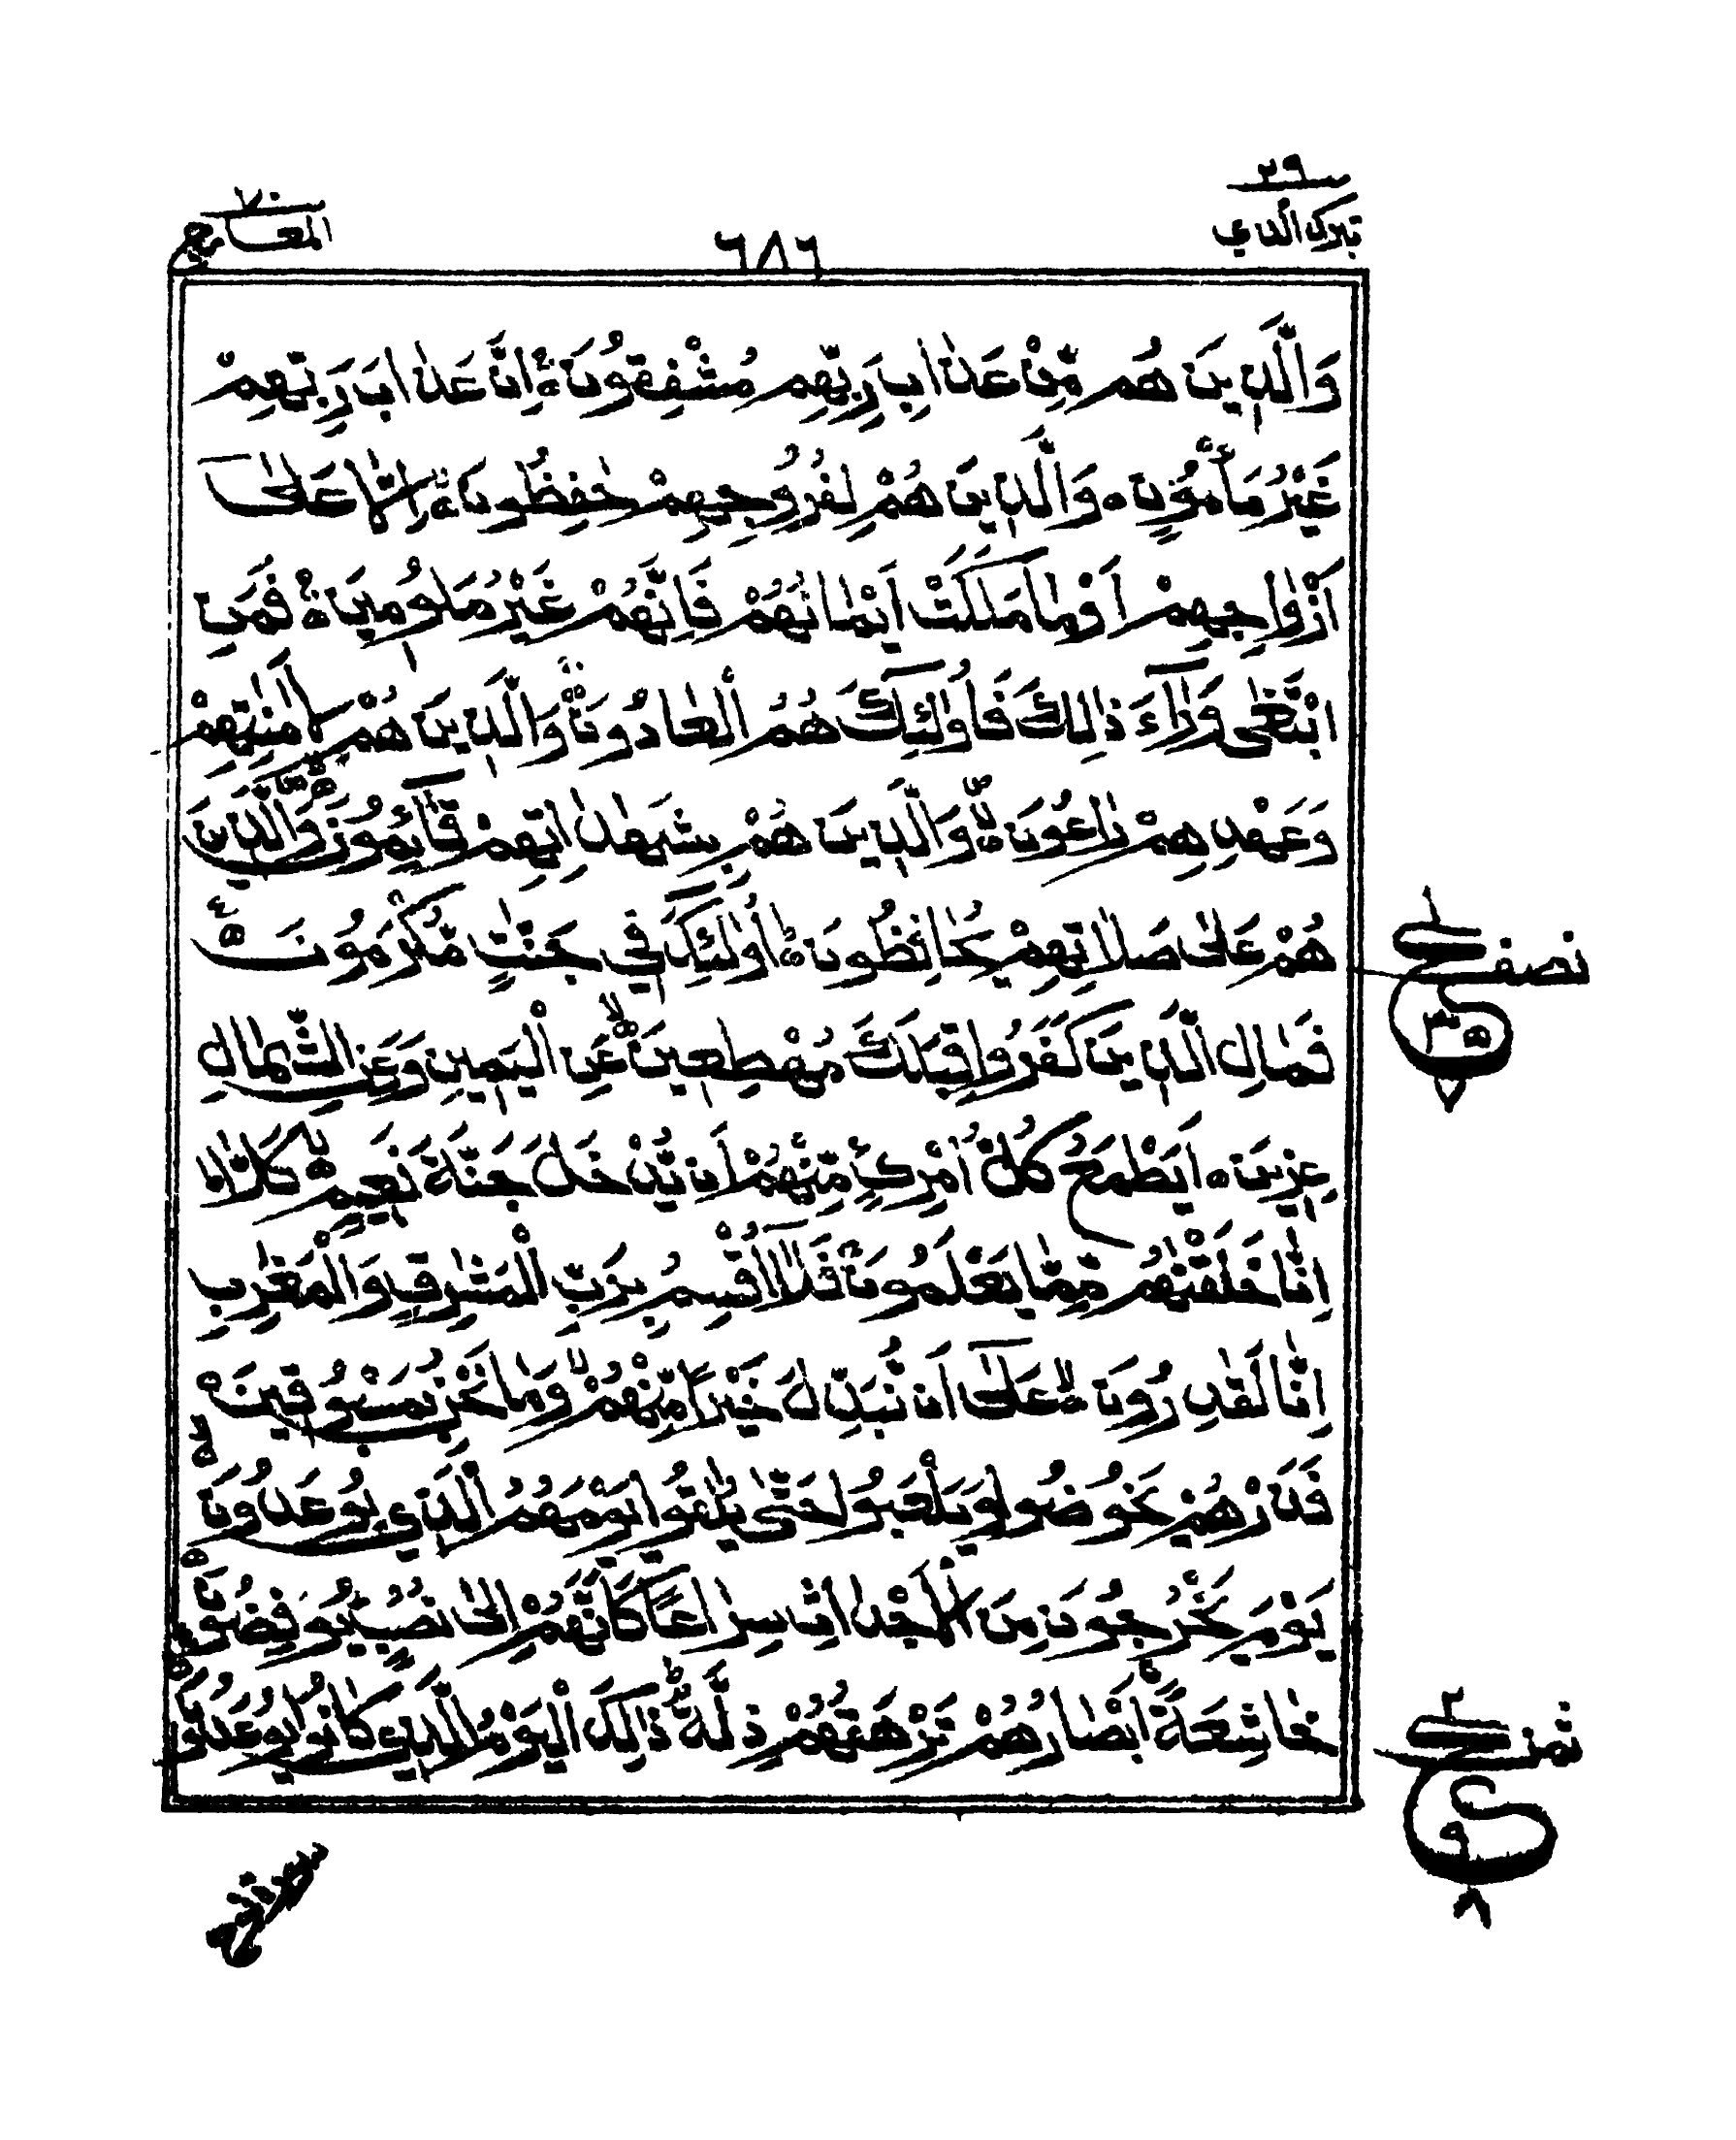 ٢٩
تبرك الذي
٦٨٦
٧٠
المعارج
وَالَّذِينَ هُم مِّنْ عَذَابِ رَبِّهِم مُّشْفِقُونَ ۝ إِنَّ عَذَابَ رَبِّهِمْ
غَيْرُ مَأْمُونٍ ۝ وَالَّذِينَ هُمْ لِفُرُوجِهِمْ حَٰفِظُونَ ۝ إِلَّا عَلَىٰ
أَزْوَٰجِهِمْ أَوْ مَا مَلَكَتْ أَيْمَانُهُمْ فَإِنَّهُمْ غَيْرُ مَلُومِينَ ۝ فَمَنِ
ابْتَغَىٰ وَرَآءَ ذَالِكَ فَأُولَٰٓئِكَ هُمُ الْعَادُونَ ۝ وَالَّذِينَ هُمْ لِأَمَٰنَٰتِهِمْ
وَعَهْدِهِمْ رَاعُونَ ۝ وَالَّذِينَ هُمْ بِشَهَٰدَاتِهِمْ قَآئِمُونَ ۝ وَالَّذِينَ
هُمْ عَلَىٰ صَلَاتِهِمْ يُحَافِظُونَ ۝ أُولَٰٓئِكَ فِي جَنَّٰتٍ مُّكْرَمُونَ ۝ ع
فَمَالِ الَّذِينَ كَفَرُوا قِبَلَكَ مُهْطِعِينَ ۝ عَنِ الْيَمِينِ وَعَنِ الشِّمَالِ
عِزِينَ ۝ أَيَطْمَعُ كُلُّ امْرِئٍ مِّنْهُمْ أَن يُدْخَلَ جَنَّةَ نَعِيمٍ ۝ كَلَّا ط
إِنَّا خَلَقْنَٰهُم مِّمَّا يَعْلَمُونَ ۝ فَلَآ أُقْسِمُ بِرَبِّ الْمَشَٰرِقِ وَالْمَغَٰرِبِ
إِنَّا لَقَٰدِرُونَ ۝ عَلَىٰٓ أَن نُّبَدِّلَ خَيْرًا مِّنْهُمْ وَمَا نَحْنُ بِمَسْبُوقِينَ ۝
فَذَرْهُمْ يَخُوضُوا وَيَلْعَبُوا حَتَّىٰ يُلَٰقُوا يَوْمَهُمُ الَّذِي يُوعَدُونَ ۝
يَوْمَ يَخْرُجُونَ مِنَ الْأَجْدَاثِ سِرَاعًا كَأَنَّهُمْ إِلَىٰ نُصُبٍ يُوفِضُونَ ۝
خَاشِعَةً أَبْصَارُهُمْ تَرْهَقُهُمْ ذِلَّةٌ ط ذَالِكَ الْيَوْمُ الَّذِي كَانُوا يُوعَدُونَ
نصف
ع
٣٥
٧
ثمن
٢
ع
٩
٨